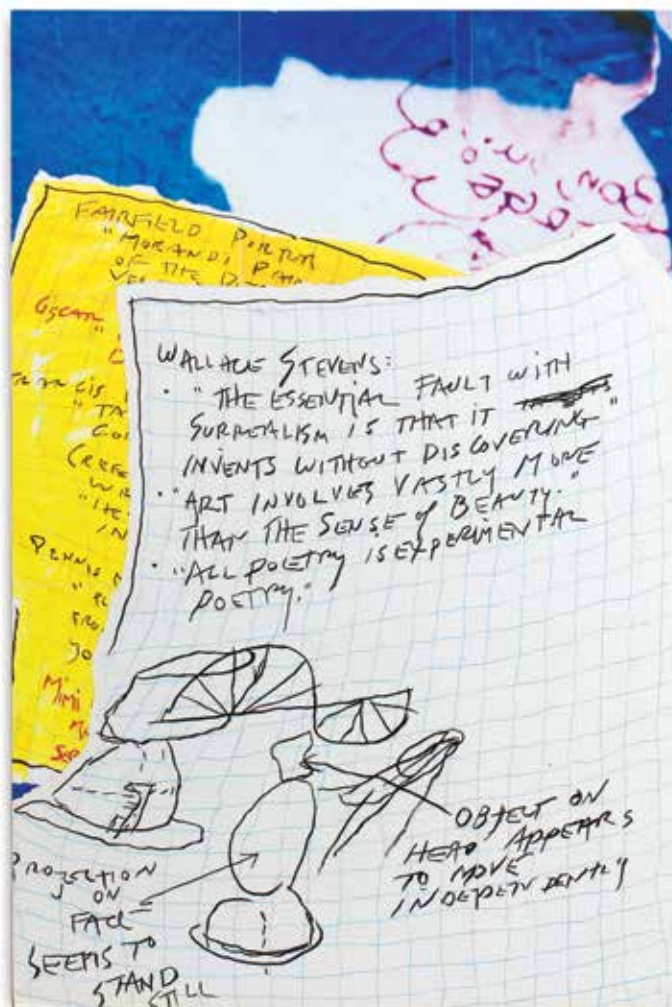 FAIRFIELD PORTER
"MORANDI
OF THE
OSCAR
WALLACE STEVENS:
· "THE ESSENTIAL FAULT WITH
SURREALISM IS THAT IT
INVENTS WITHOUT DISCOVERING"
· "ART INVOLVES VASTLY MORE
THAN THE SENSE of BEAUTY."
· "ALL POETRY IS EXPERIMENTAL
POETRY."
OBJECT ON
HEAD APPEARS
TO MOVE
INDEPENDENTLY
PROJECTION
ON
FACE
SEEMS TO
STAND
STILL